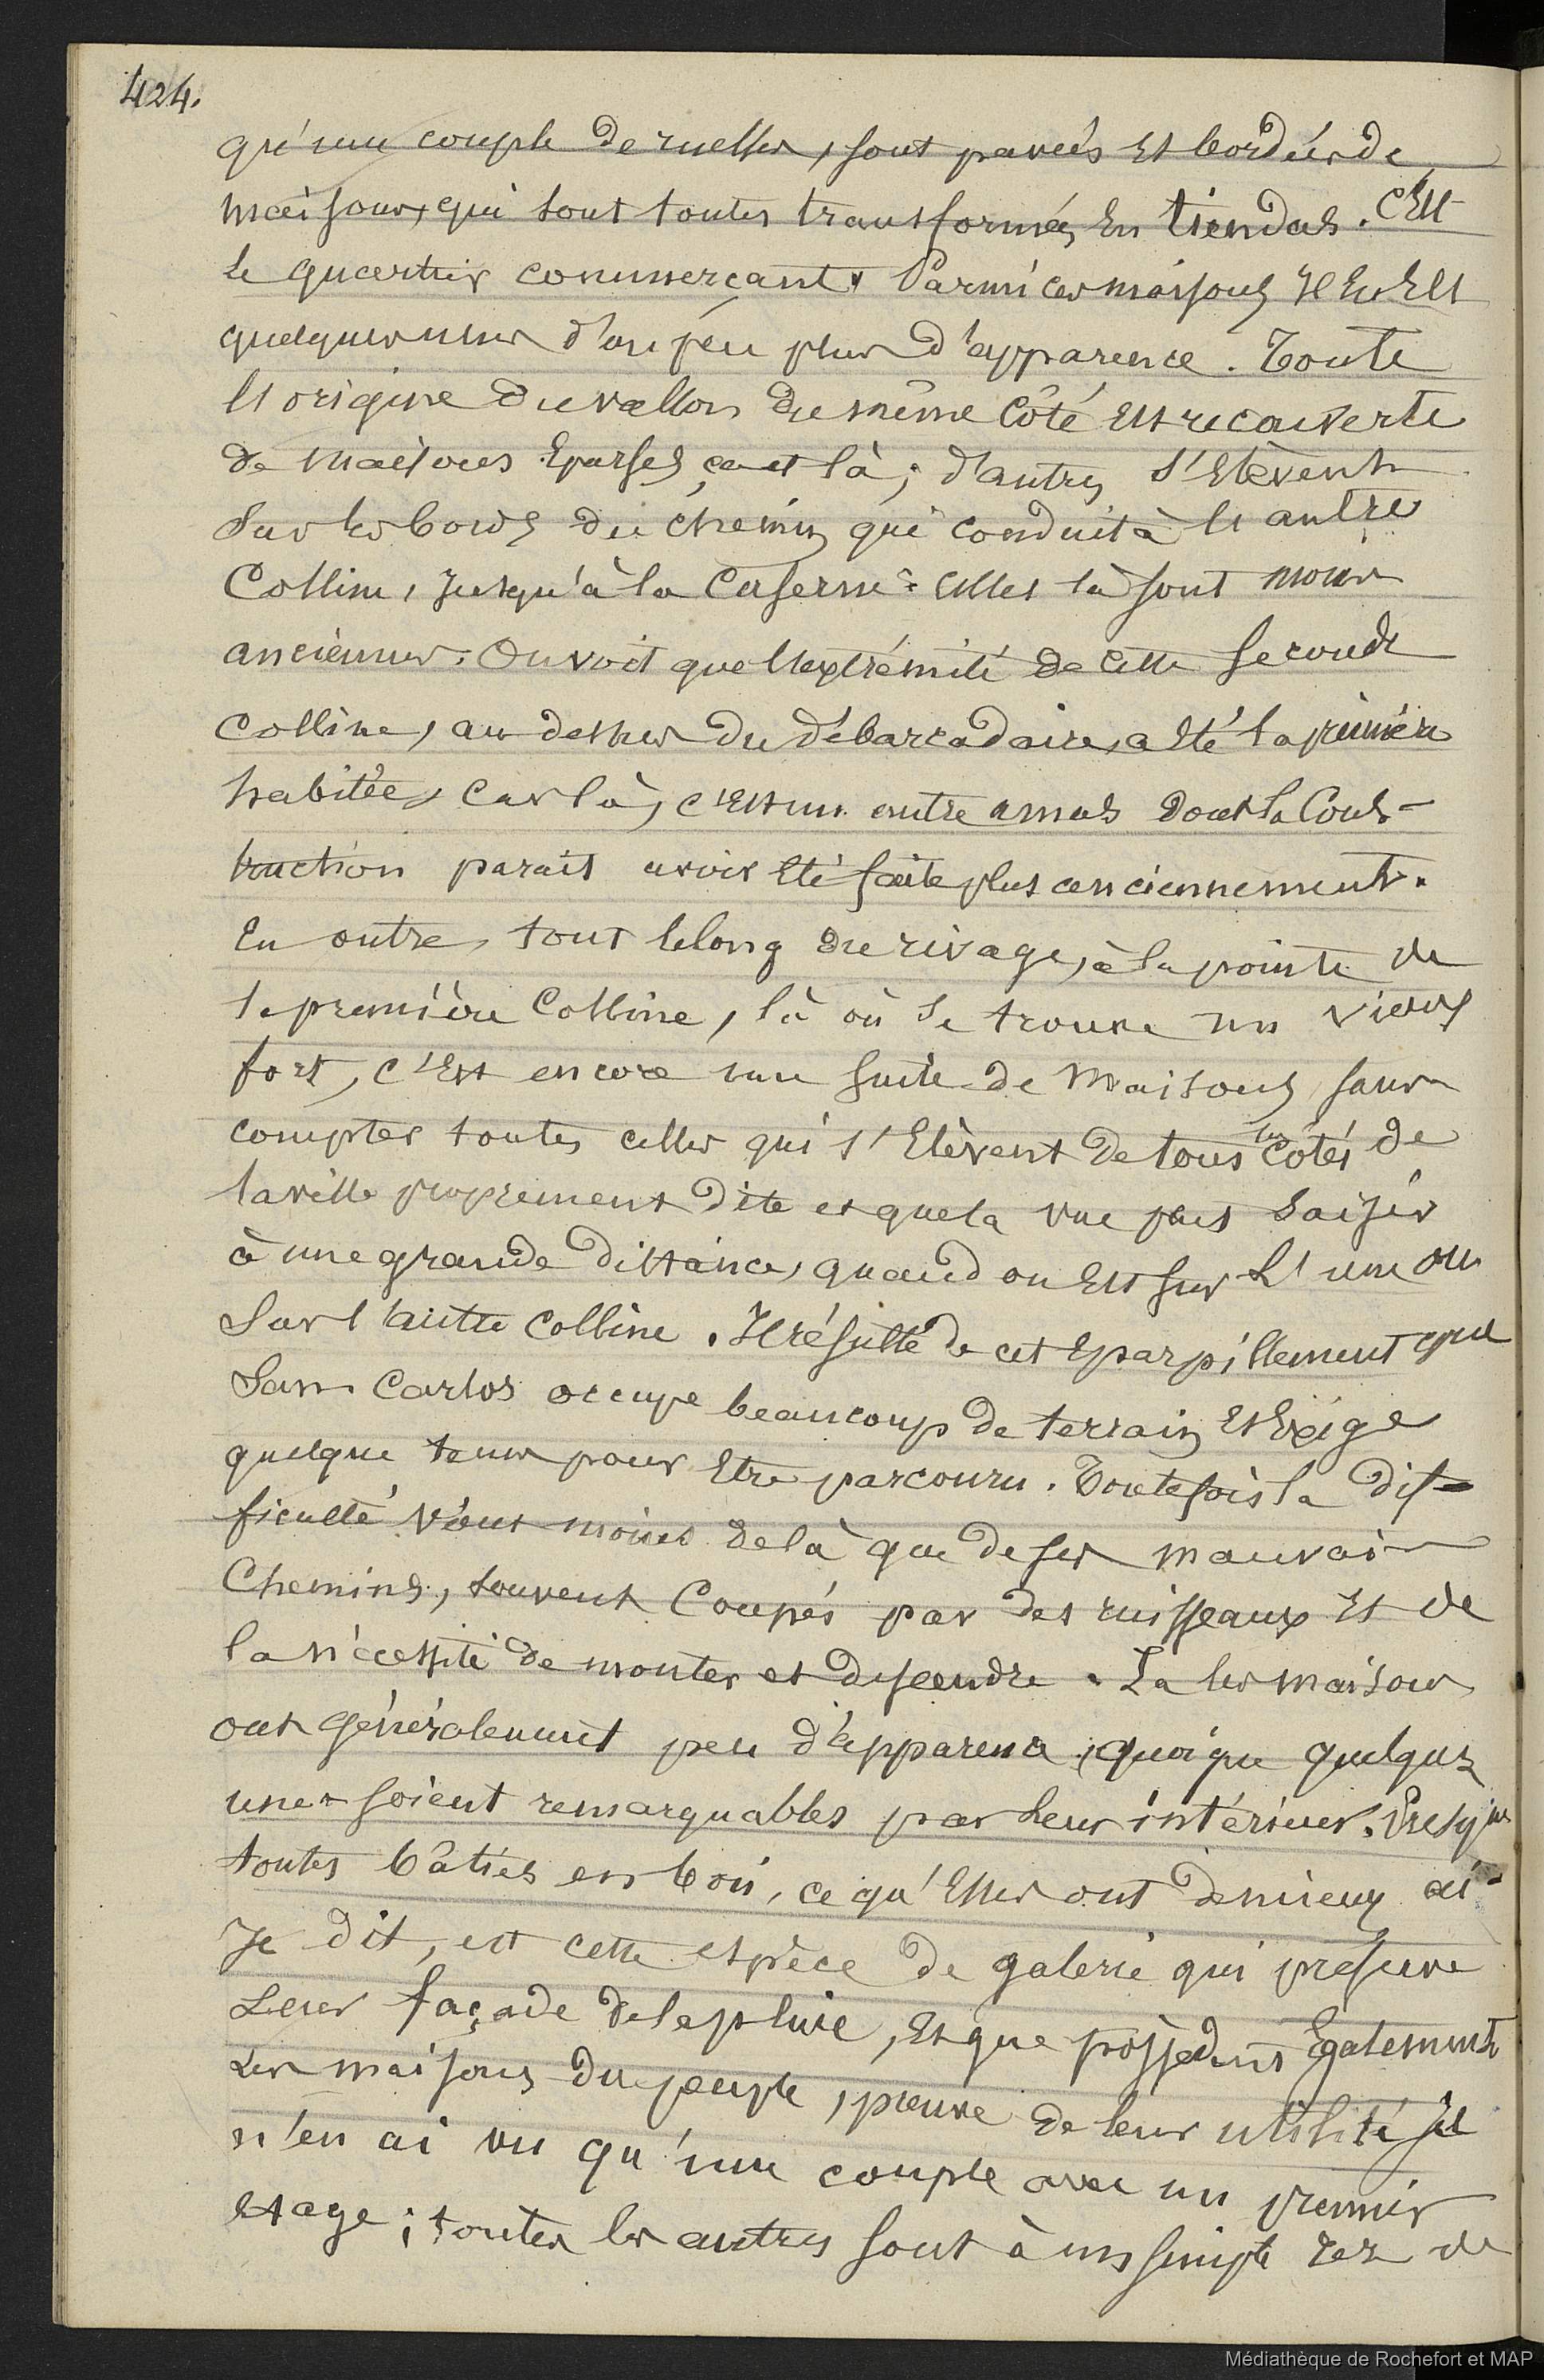 424.
qu'une couple de ruelles, sont pavées et bordées de
maisons, qui sont toutes transformées en tiendas. C'est
le quartier commerçant. Parmi ces maisons il en est
quelques unes d'un peu plus d'apparence. Toute
l'origine du vallon du même côté est recouverte
de maisons éparses ça et là; d'autres s'élèvent
sur les bords du chemin qui conduit à l'autre
colline, jusqu'à la caserne: celles là sont moins
anciennes. On voit que l'extrémité de cette seconde
colline, au dessus du débarcadaire, a été la première
habitée, car là, c'est un autre amas dont la cons-
truction parait avoir été faite plus anciennement.
En outre, tout le long du rivage, à la pointe de
la première colline, là où se trouve un vieux
fort, c'est encore une suite de maisons, sans
compter toutes celles qui s'élèvent de tous les côtés de
la ville proprement dite et que la vue peut saisir
à une grande distance, quand on est sur l'une ou
sur l'autre colline. Il résulte de cet éparpillement que
San Carlos occupe beaucoup de terrain et exige
quelque tems pour être parcouru. Toutefois la dif-
ficulté vient moins de là que de ses mauvais
chemins, souvent coupés par des ruisseaux et de
la nécessité de monter et descendre. Là les maisons
ont généralement peu d'apparence, quoique quelques
unes soient remarquables par leur intérieur. Presque
toutes bâties en bois, ce qu'elles ont de mieux ai-
je dit, est cette espèce de galerie qui préserve
leur façade de la pluie, et que possèdent également
les maisons du peuple, preuve de leur utilité. Je
n'en ai vu qu'une couple avec un premier
étage; toutes les autres sont à un simple rez de
Médiathèque de Rochefort et MAP